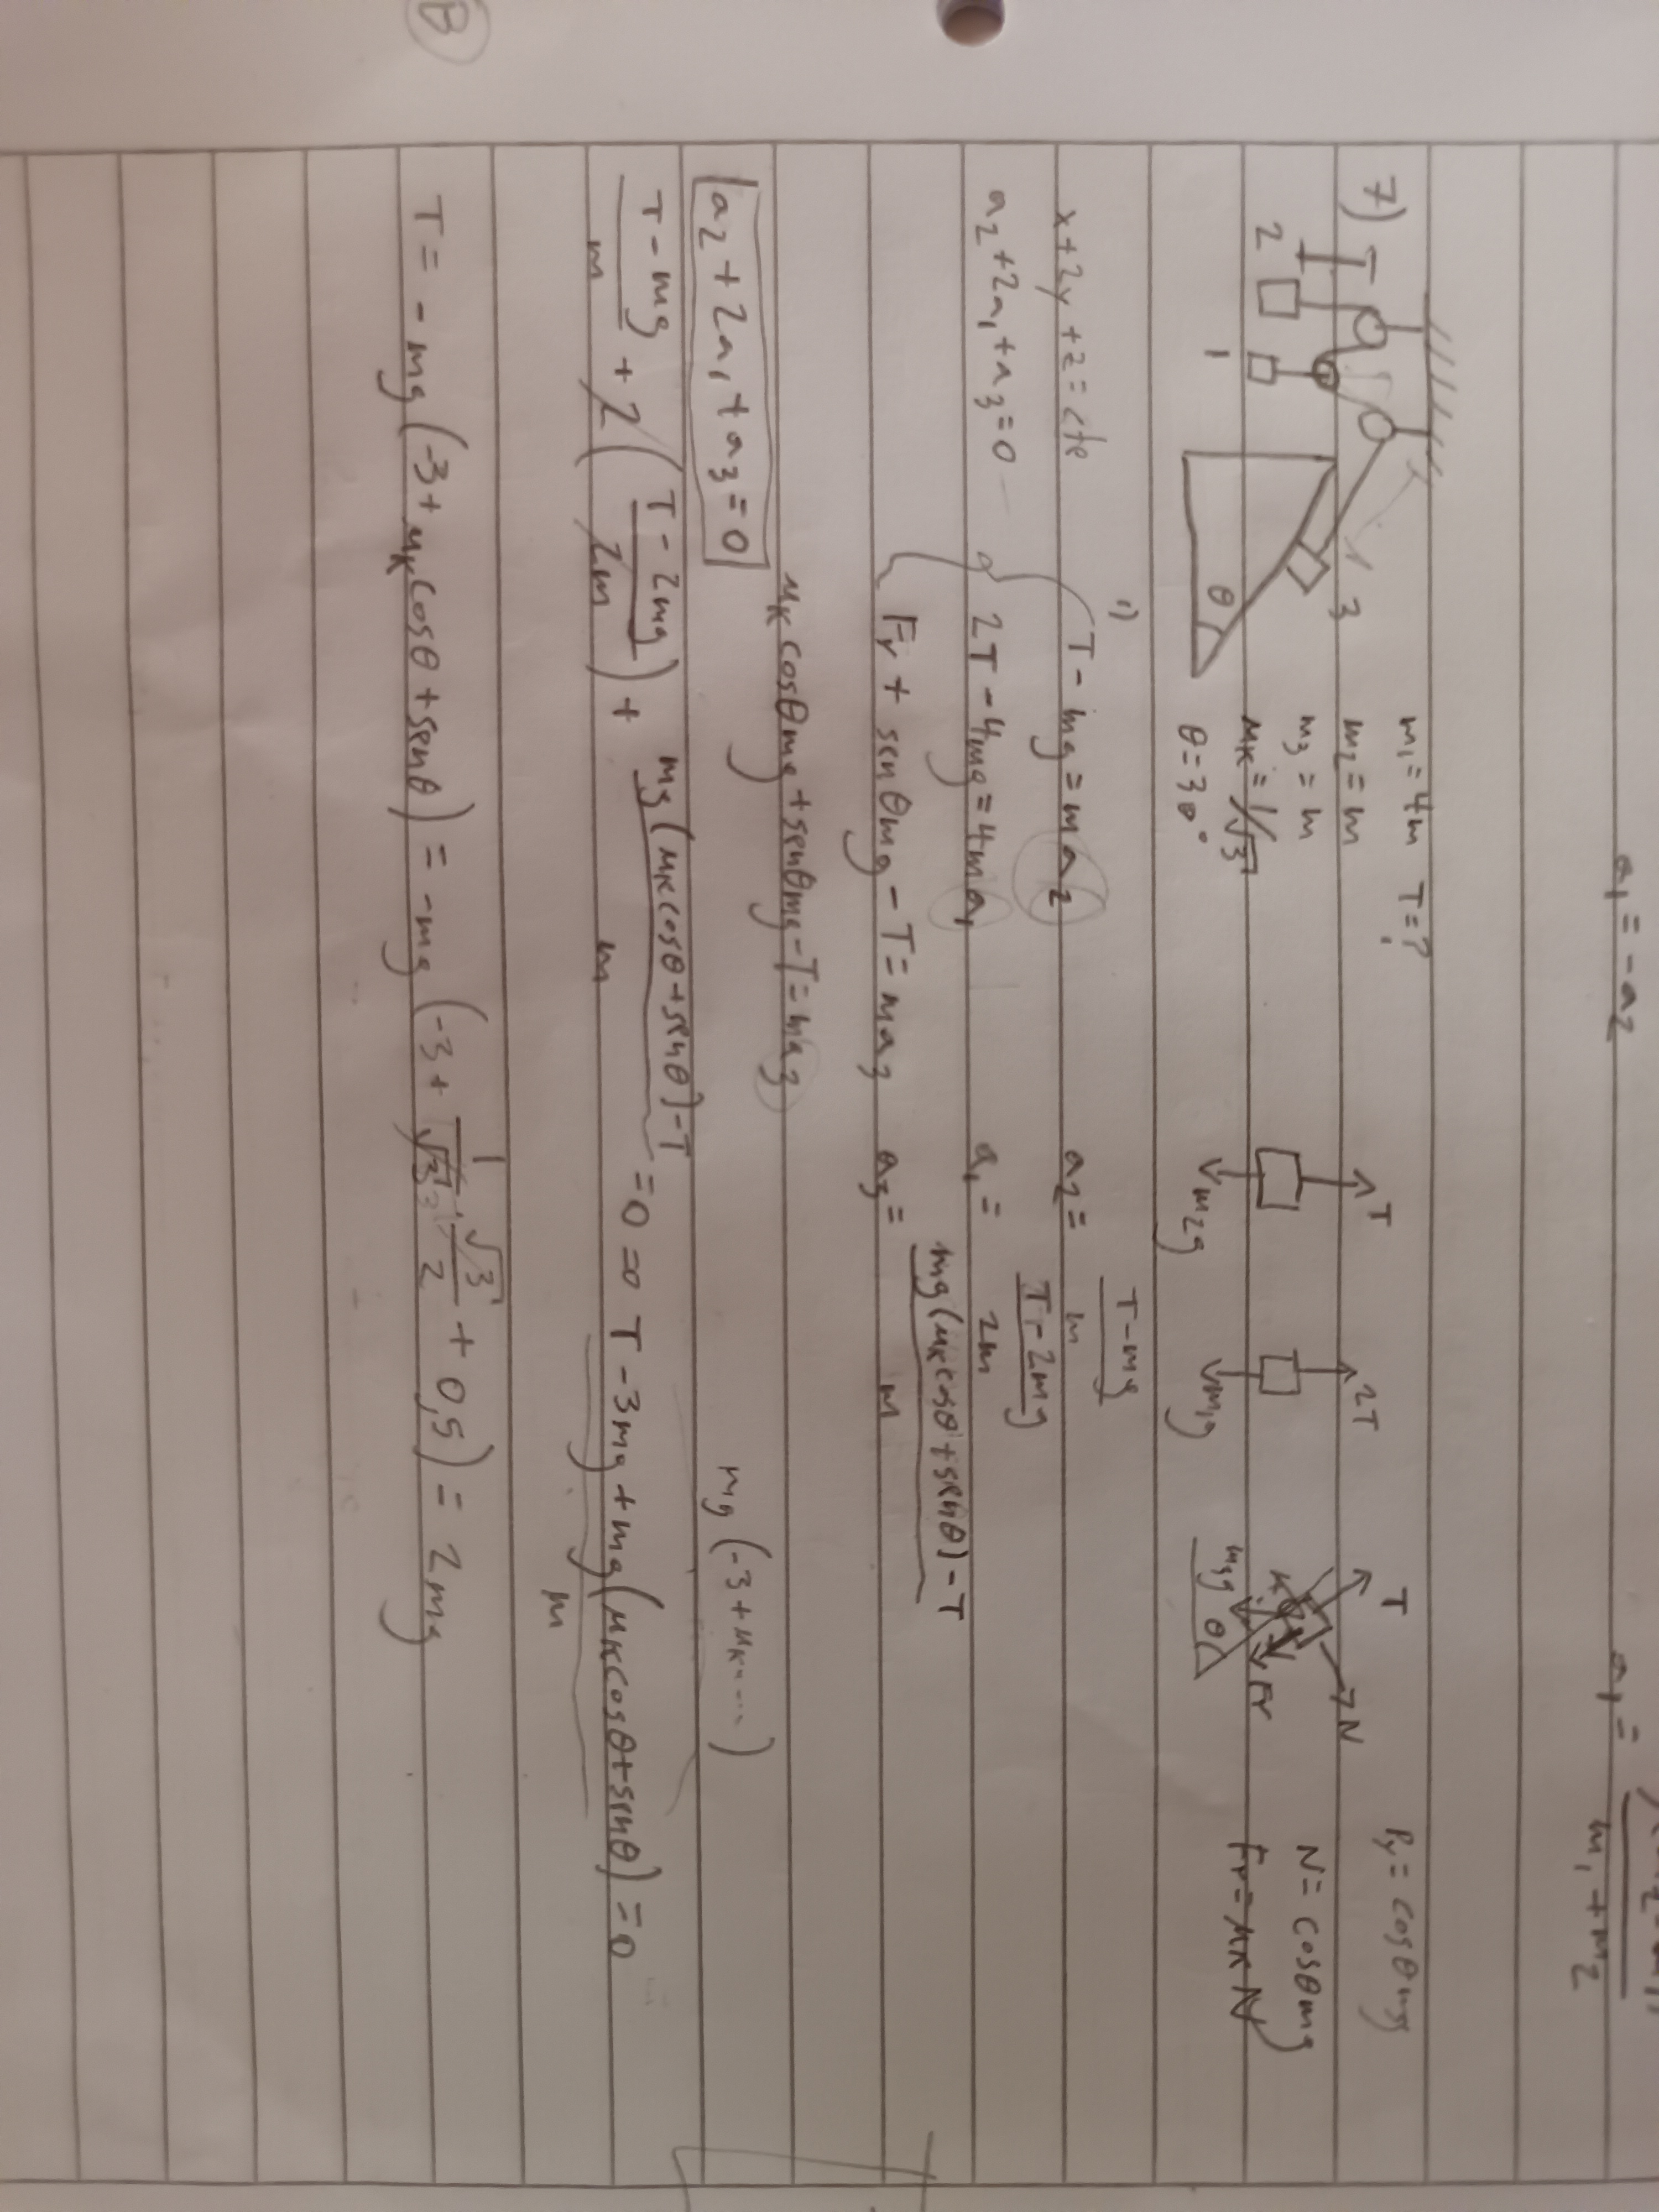 a₁ = -a₂
a₁ =
m₁ + m₂
7)
T
2
1
3
θ
m₁ = 4m T = ?
m₂ = m
m₃ = m
μₖ = 1/√3
θ = 30°
T
m₂g
2T
m₁g
T
N
Fr
m₃g
θ
Py = cosθmg
N = cosθmg
Fr = μₖN
x + 2y + z = cte
a₂ + 2a₁ + a₃ = 0
1)
T - mg = ma₂
2T - 4mg = 4ma₁
Fr + senθmg - T = ma₃
a₂ = (T - mg)/m
a₁ = (T - 2mg)/2m
a₃ = (mg(μₖcosθ + senθ) - T)/m
μₖcosθmg + senθmg - T = ma₃
a₂ + 2a₁ + a₃ = 0
mg(-3 + μₖ....)
(T - mg)/m + 2((T - 2mg)/2m) + (mg(μₖcosθ + senθ) - T)/m = 0 = 0 (T - 3mg + mg(μₖcosθ + senθ))/m = 0
T = -mg(-3 + μₖcosθ + senθ) = -mg(-3 + 1/√3 · √3/2 + 0,5) = 2mg
B